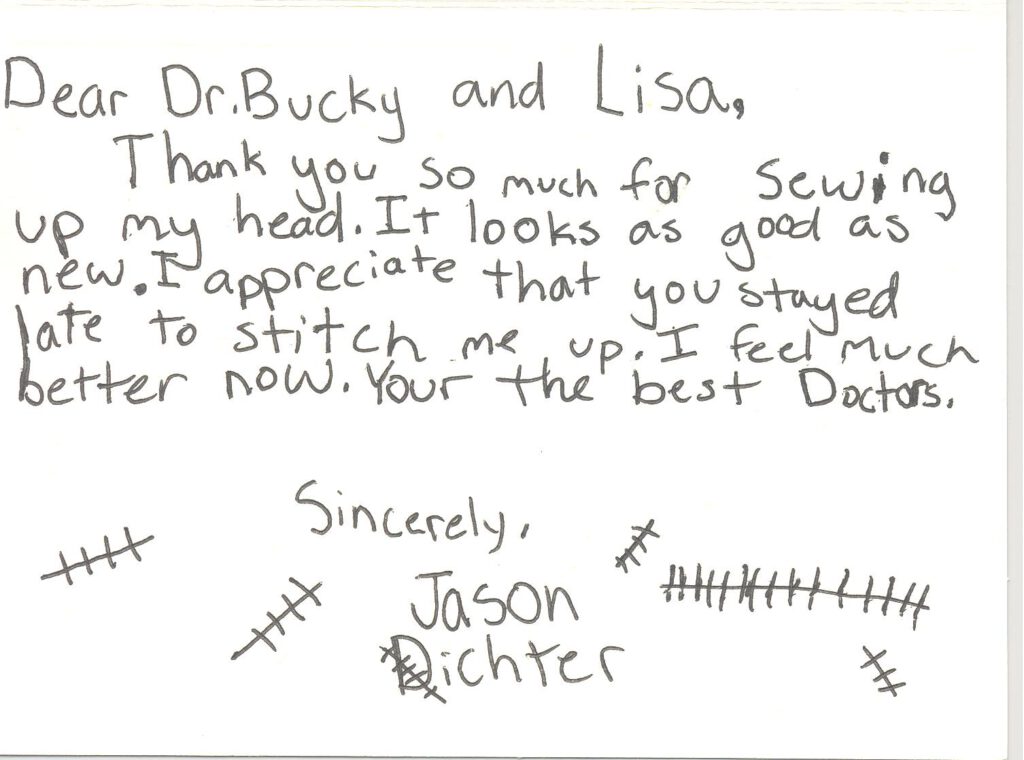 Dear Dr. Bucky and Lisa,
Thank you so much for sewing
up my head. It looks as good as
new. I appreciate that you stayed
late to stitch me up. I feel much
better now. Your the best Doctors.
Sincerely,
Jason
Dichter